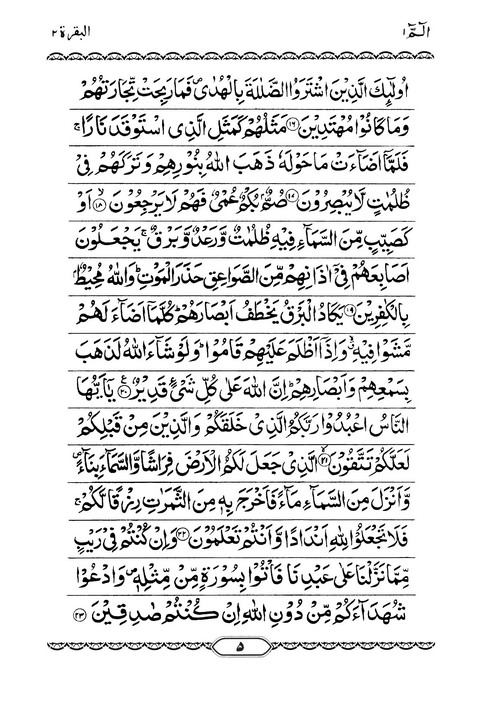 الٓمّٓ ١ البقرة ٢
اُولٰٓئِكَ الَّذِيْنَ اشْتَرَوُا الضَّلٰلَةَ بِالْهُدٰى ۪ فَمَا رَبِحَتْ تِّجَارَتُهُمْ
وَمَا كَانُوْا مُهْتَدِيْنَ ۝۱۶ مَثَلُهُمْ كَمَثَلِ الَّذِى اسْتَوْقَدَ نَارًا ۚ
فَلَمَّآ اَضَآءَتْ مَا حَوْلَهٗ ذَهَبَ اللّٰهُ بِنُوْرِهِمْ وَتَرَكَهُمْ فِىْ
ظُلُمٰتٍ لَّا يُبْصِرُوْنَ ۝۱۷ صُمٌّۢ بُكْمٌ عُمْىٌ فَهُمْ لَا يَرْجِعُوْنَ ۝۱۸ اَوْ
كَصَيِّبٍ مِّنَ السَّمَآءِ فِيْهِ ظُلُمٰتٌ وَّرَعْدٌ وَّبَرْقٌ ۚ يَجْعَلُوْنَ
اَصَابِعَهُمْ فِىْٓ اٰذَانِهِمْ مِّنَ الصَّوَاعِقِ حَذَرَ الْمَوْتِ ؕ وَاللّٰهُ مُحِيْطٌۢ
بِالْكٰفِرِيْنَ ۝۱۹ يَكَادُ الْبَرْقُ يَخْطَفُ اَبْصَارَهُمْ ؕ كُلَّمَآ اَضَآءَ لَهُمْ
مَّشَوْا فِيْهِ ۙ وَاِذَآ اَظْلَمَ عَلَيْهِمْ قَامُوْا ؕ وَلَوْ شَآءَ اللّٰهُ لَذَهَبَ
بِسَمْعِهِمْ وَاَبْصَارِهِمْ ؕ اِنَّ اللّٰهَ عَلٰى كُلِّ شَىْءٍ قَدِيْرٌ ۝۲۰ يٰٓاَيُّهَا
النَّاسُ اعْبُدُوْا رَبَّكُمُ الَّذِىْ خَلَقَكُمْ وَالَّذِيْنَ مِنْ قَبْلِكُمْ
لَعَلَّكُمْ تَتَّقُوْنَ ۝۲۱ الَّذِىْ جَعَلَ لَكُمُ الْاَرْضَ فِرَاشًا وَّالسَّمَآءَ بِنَآءً ۪
وَّاَنْزَلَ مِنَ السَّمَآءِ مَآءً فَاَخْرَجَ بِهٖ مِنَ الثَّمَرٰتِ رِزْقًا لَّكُمْ ۚ
فَلَا تَجْعَلُوْا لِلّٰهِ اَنْدَادًا وَّاَنْتُمْ تَعْلَمُوْنَ ۝۲۲ وَاِنْ كُنْتُمْ فِىْ رَيْبٍ
مِّمَّا نَزَّلْنَا عَلٰى عَبْدِنَا فَاْتُوْا بِسُوْرَةٍ مِّنْ مِّثْلِهٖ ۪ وَادْعُوْا
شُهَدَآءَكُمْ مِّنْ دُوْنِ اللّٰهِ اِنْ كُنْتُمْ صٰدِقِيْنَ ۝۲۳
۵